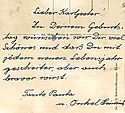 Lieber Karlpeter!
Zu Deinem Geburts-
tag wünschen wir Dir viel
Schönes und daß Du mit
jedem neuen Lebensjahr
gescheiter, aber auch
braver wirst.
Tante Paula
u. Onkel